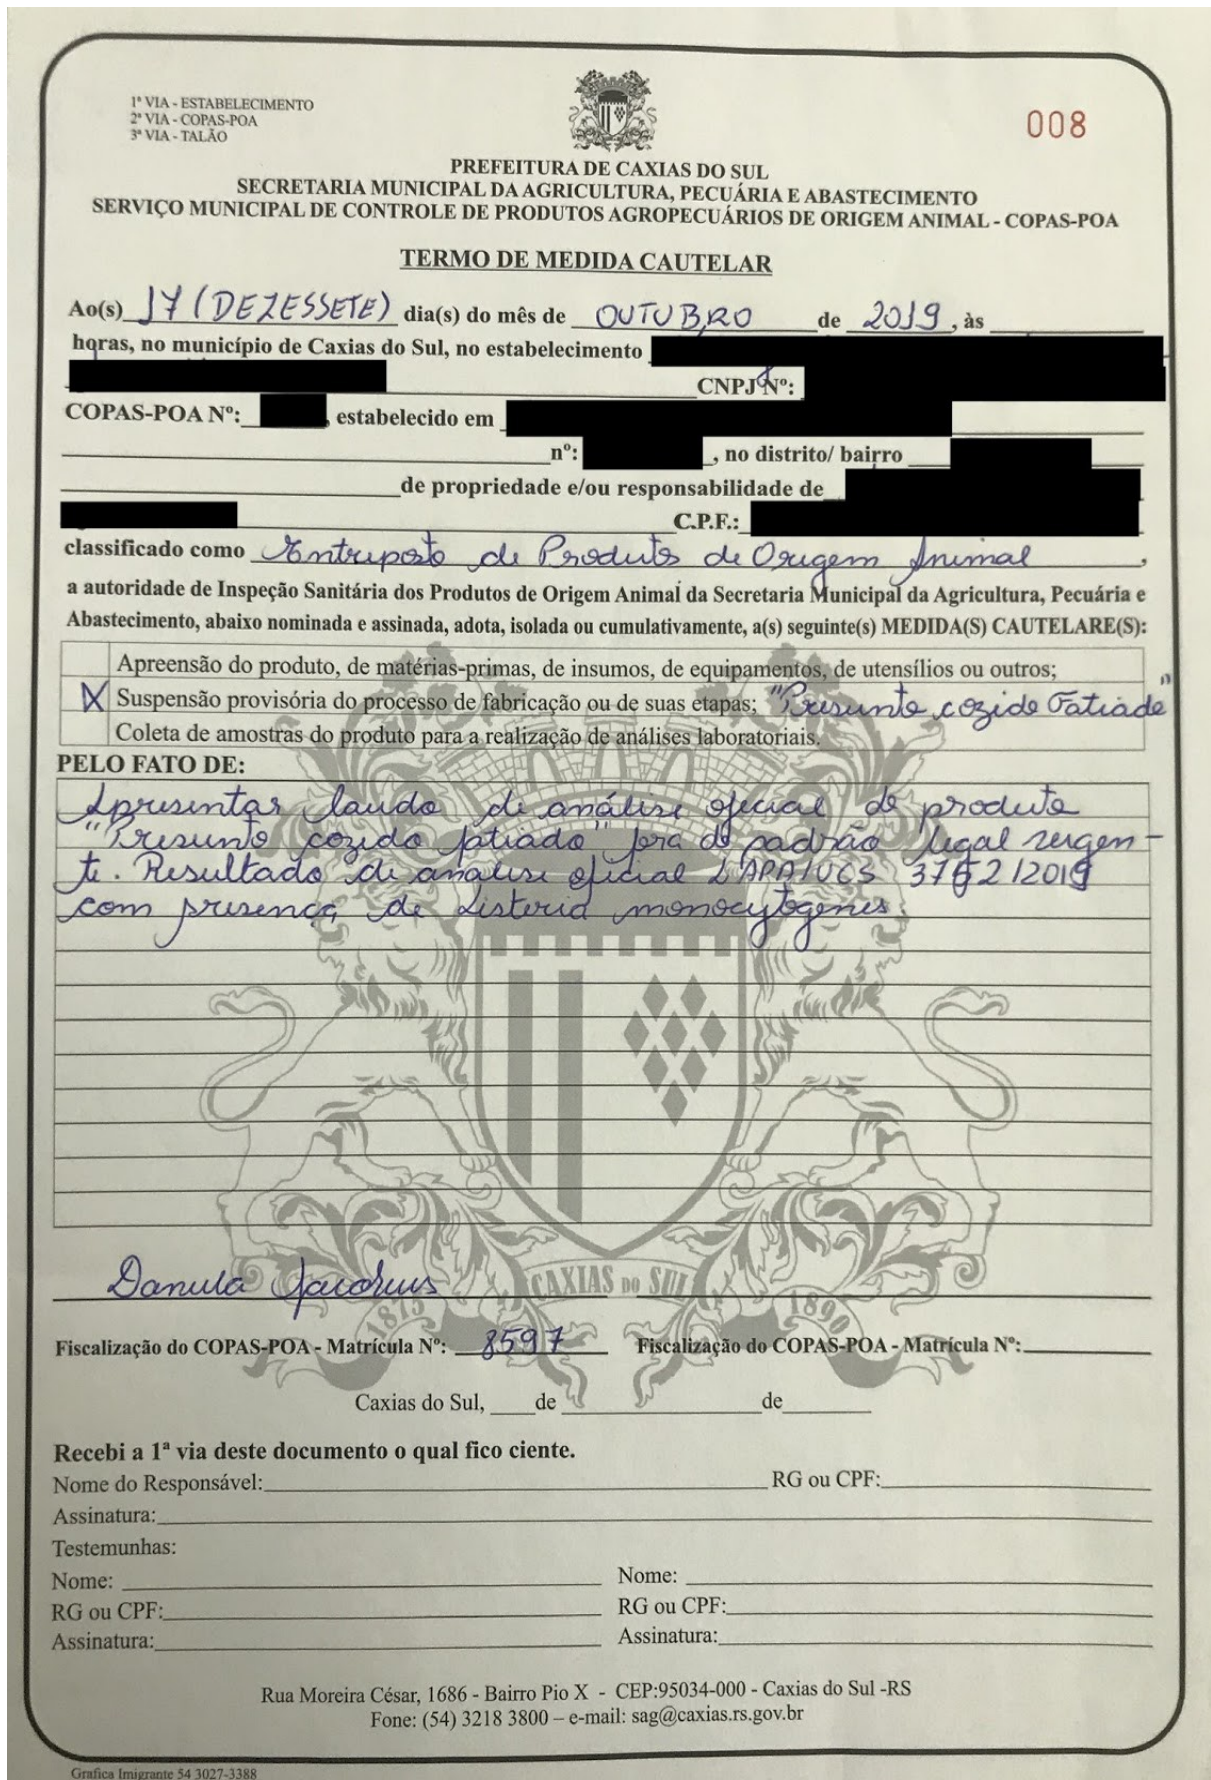 1ª VIA - ESTABELECIMENTO
2ª VIA - COPAS-POA
3ª VIA - TALÃO
008
PREFEITURA DE CAXIAS DO SUL
SECRETARIA MUNICIPAL DA AGRICULTURA, PECUÁRIA E ABASTECIMENTO
SERVIÇO MUNICIPAL DE CONTROLE DE PRODUTOS AGROPECUÁRIOS DE ORIGEM ANIMAL - COPAS-POA
TERMO DE MEDIDA CAUTELAR
Ao(s) 17 (DEZESSETE) dia(s) do mês de OUTUBRO de 2019, às
horas, no município de Caxias do Sul, no estabelecimento
CNPJ Nº:
COPAS-POA Nº: , estabelecido em
nº: , no distrito/ bairro
de propriedade e/ou responsabilidade de
C.P.F.:
classificado como Entreposto de Produtos de Origem Animal,
a autoridade de Inspeção Sanitária dos Produtos de Origem Animal da Secretaria Municipal da Agricultura, Pecuária e
Abastecimento, abaixo nominada e assinada, adota, isolada ou cumulativamente, a(s) seguinte(s) MEDIDA(S) CAUTELARE(S):
Apreensão do produto, de matérias-primas, de insumos, de equipamentos, de utensílios ou outros;
X Suspensão provisória do processo de fabricação ou de suas etapas; "Presunto cozido Fatiado"
Coleta de amostras do produto para a realização de análises laboratoriais.
PELO FATO DE:
Apresentar laudo de análise oficial do produto
"Presunto cozido fatiado" fora do padrão legal vigen-
te. Resultado de análise oficial LAPA/UCS /2019
com presença de Listeria monocytogenes.
CAXIAS DO SUL
1875 1890
Danula
Fiscalização do COPAS-POA - Matrícula Nº: 8597 Fiscalização do COPAS-POA - Matrícula Nº:
Caxias do Sul, de de
Recebi a 1ª via deste documento o qual fico ciente.
Nome do Responsável: RG ou CPF:
Assinatura:
Testemunhas:
Nome: Nome:
RG ou CPF: RG ou CPF:
Assinatura: Assinatura:
Rua Moreira César, 1686 - Bairro Pio X - CEP:95034-000 - Caxias do Sul -RS
Fone: (54) 3218 3800 – e-mail: sag@caxias.rs.gov.br
Grafica Imigrante 54 3027-3388